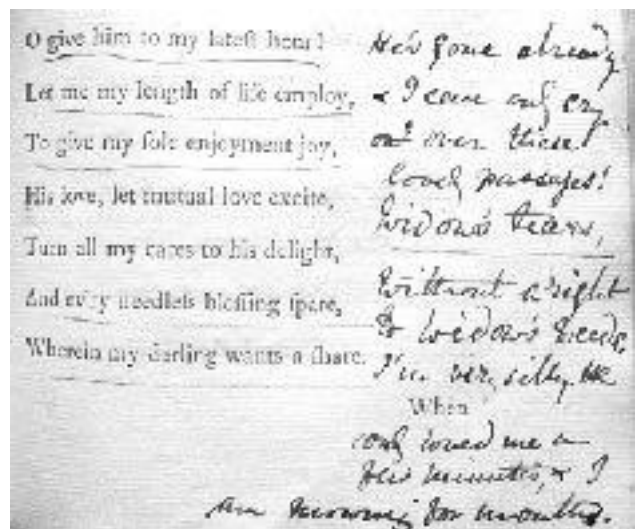 O give him to my lateſt hour!
Let me my length of life employ,
To give my ſole enjoyment joy,
His love, let mutual love excite,
Turn all my cares to his delight,
And ev'ry needleſs bleſſing ſpare,
Wherein my darling wants a ſhare.
When
He's gone already
& I can only cry
out over these
lovely passages!
Widow's tears,
Without a right
to widow's weeds,
I'm very silly. He
only loved me a
few minutes, & I
am mourning for months.